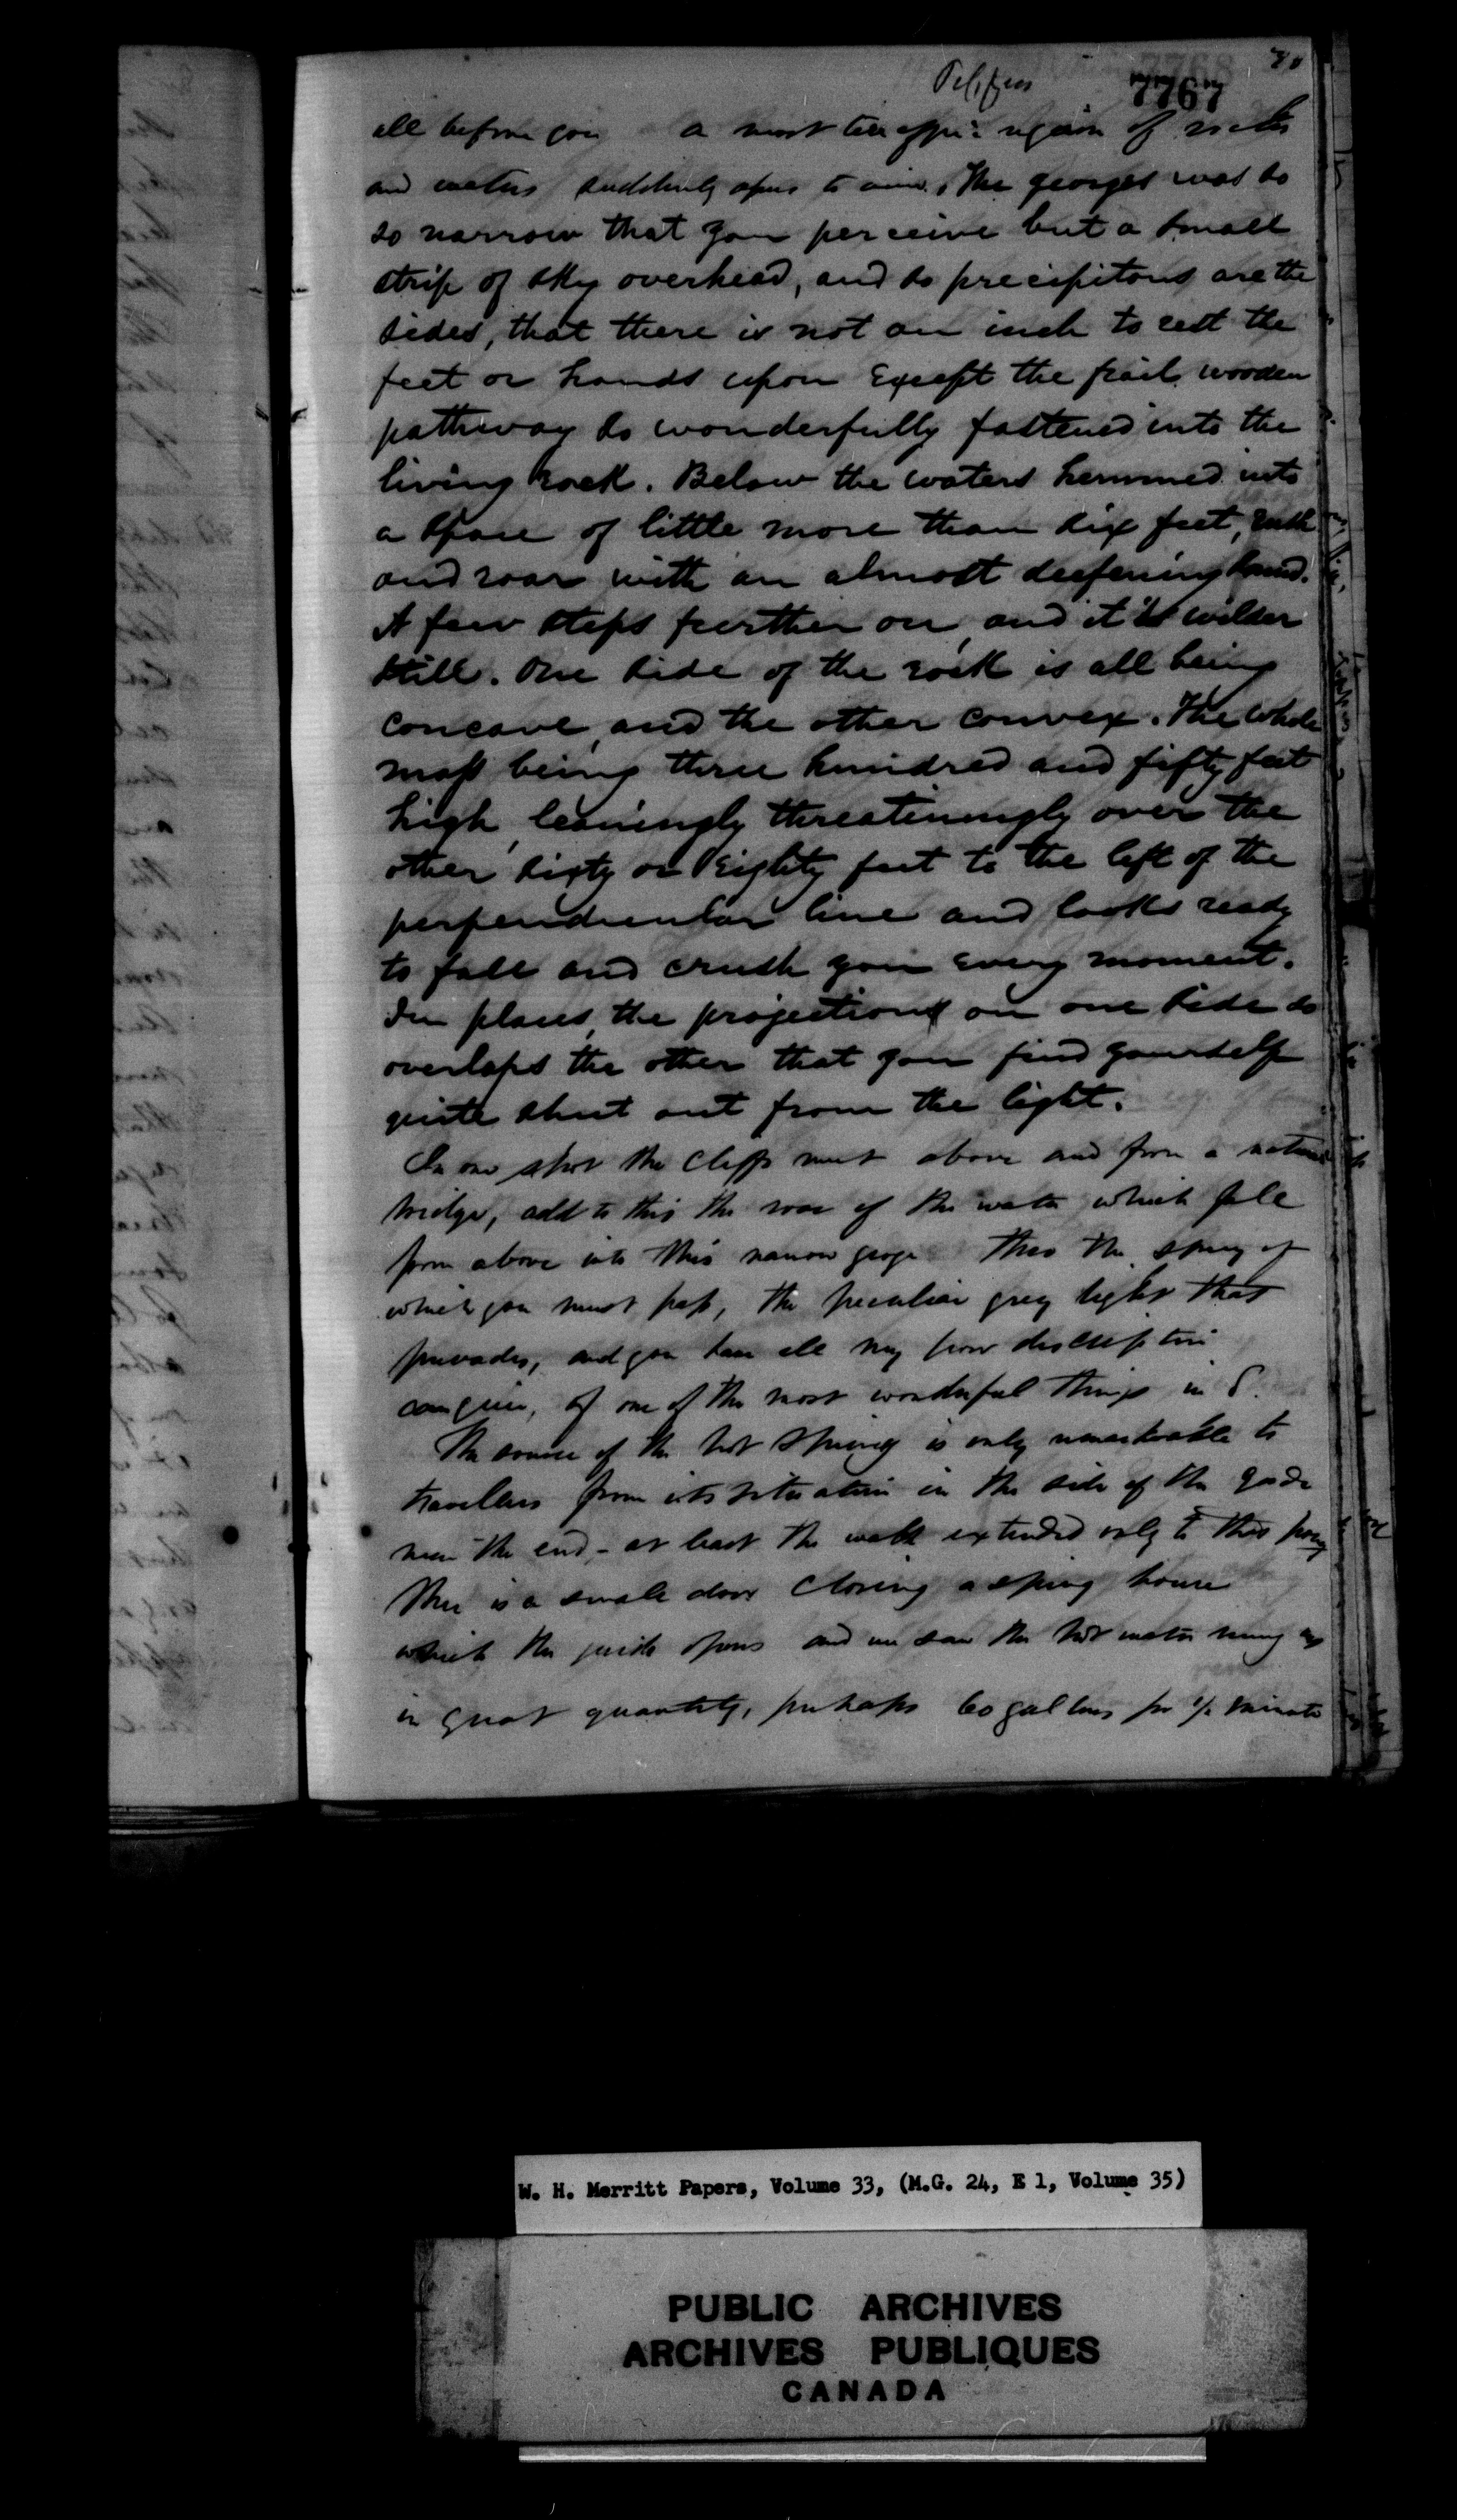 Pfiffers
7767
all before you a most terrific region of rocks
and waters suddenly opens to view. The georges was so
so narrow that you perceive but a small
strip of sky overhead, and so precipitous are the
sides, that there is not an inch to rest the
feet or hands upon Except the frail wooden
pathway so wonderfully fastened into the
living rock. Below the waters hemmed into
a space of little more than six feet, rush
and roar with an almost deefening sound.
A few steps further on, and it is wilder
still. One side of the rock is all being
concave, and the other convex. The whole
mass being three hundred and fifty feet
high, leaningly threateningly over the
other sixty or Eighty feet to the left of the
perpendicular line and looks ready
to fall and crush you every moment.
In places, the projections on one side so
overlaps the other that you find yourself
quite shut out from the light.
In one spot the Cliffs meet above and form a natural
bridge, add to this the roar of the water which fall
from above into this narrow gorge thro the spray of
which you must pass, the peculiar grey light that
pervades, and you have all my poor description
can give, of one of the most wonderful things in S.
The source of the hot spring is only remarkable to
travellers from its situation in the side of the gorge
near the end, - at least the walk extended only to this
There is a small door Closing a spring house
which the guide opens and we saw the hot water
in great quantity, perhaps 60 gallons per 1/2 minute
W. H. Merritt Papers, Volume 33, (M.G. 24, E 1, Volume 35)
PUBLIC ARCHIVES
ARCHIVES PUBLIQUES
CANADA